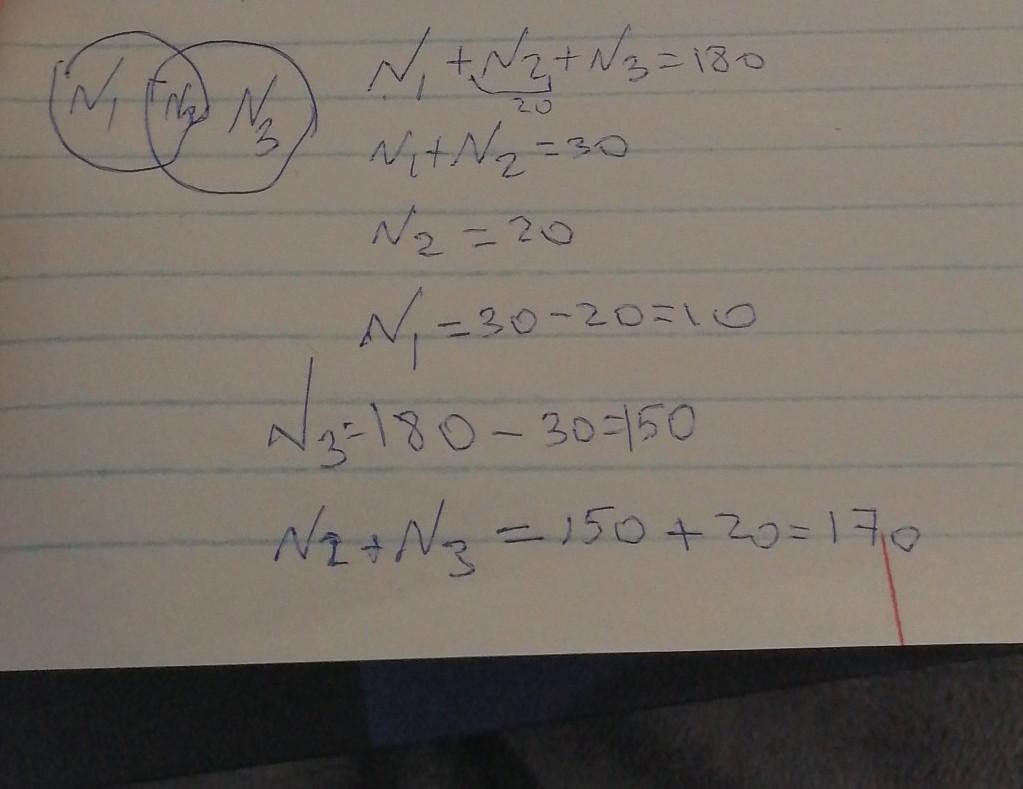 N₁ N₂ N₃
N₁+N₂+N₃=180
20
N₁+N₂=30
N₂=20
N₁=30-20=10
N₃=180-30=150
N₂+N₃=150+20=170